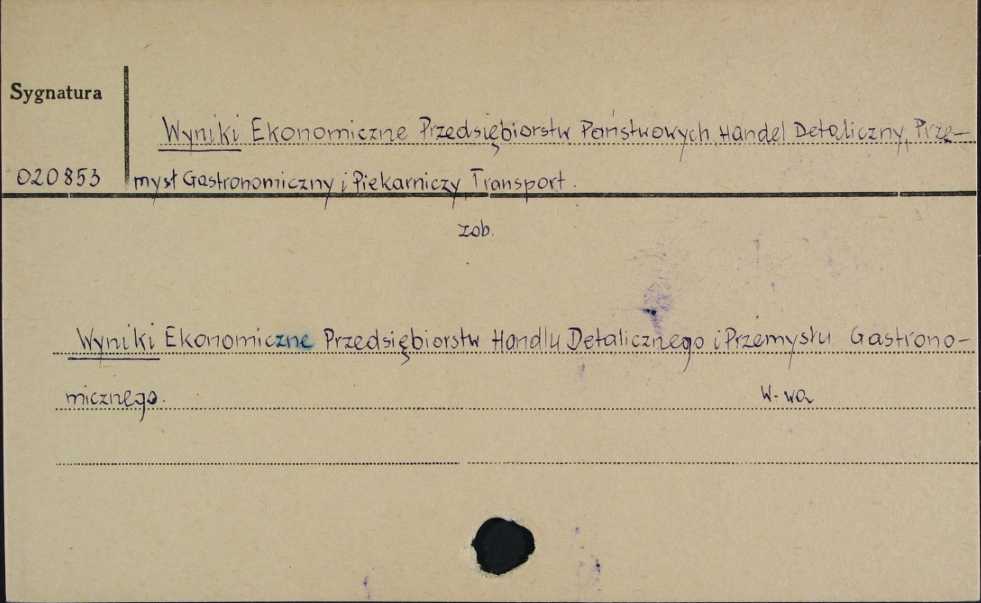 Sygnatura
Wyniki Ekonomiczne Przedsiębiorstw Państwowych, Handel Detaliczny, Prze-
020853 mysł Gastronomiczny i Piekarniczy, Transport.
zob.
Wyniki Ekonomiczne Przedsiębiorstw Handlu Detalicznego i Przemysłu Gastrono-
micznego. W-wa